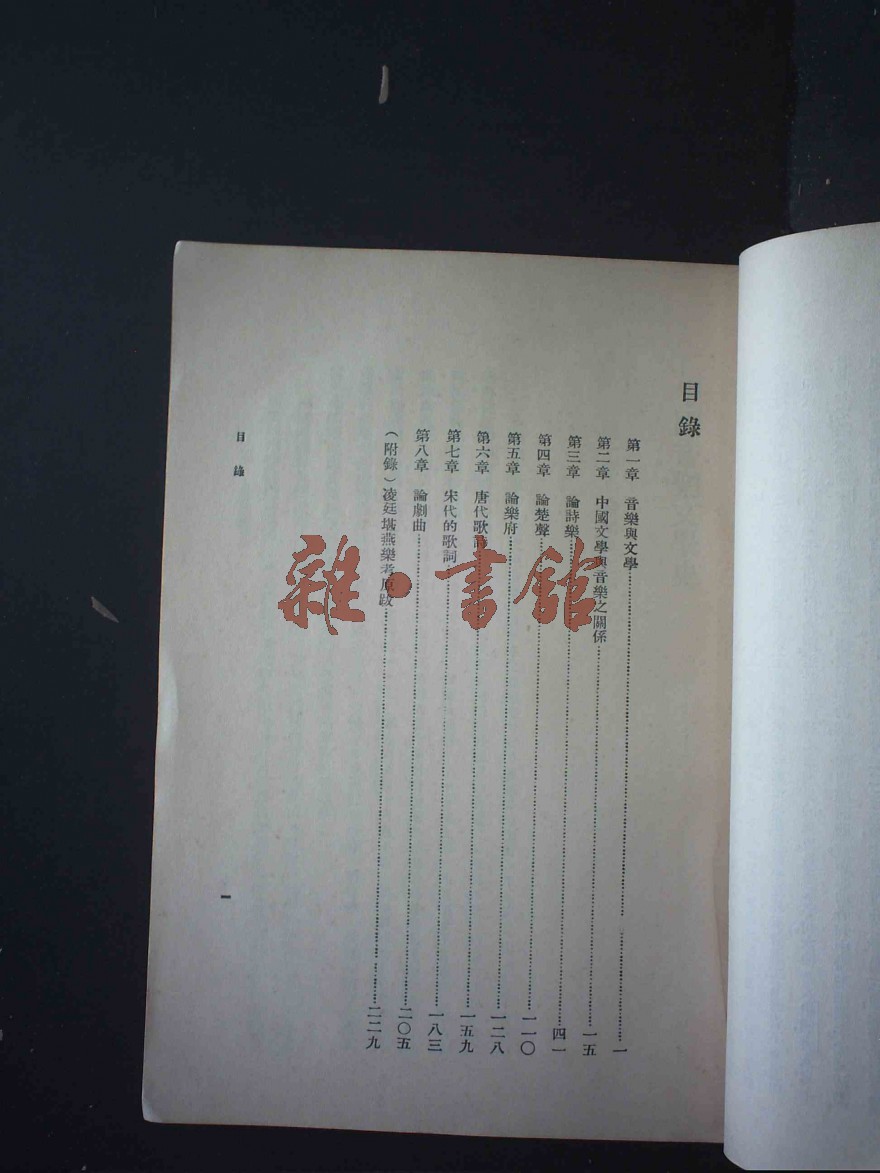 目錄
第一章 音樂與文學……一
第二章 中國文學與音樂之關係……一五
第三章 論詩樂……四一
第四章 論楚聲……一一〇
第五章 論樂府……一二八
第六章 唐代歌詩……一五九
第七章 宋代的歌詞……一八三
第八章 論劇曲……二〇五
（附錄）凌廷堪燕樂考原跋……二二九
目錄
一
雜·書館